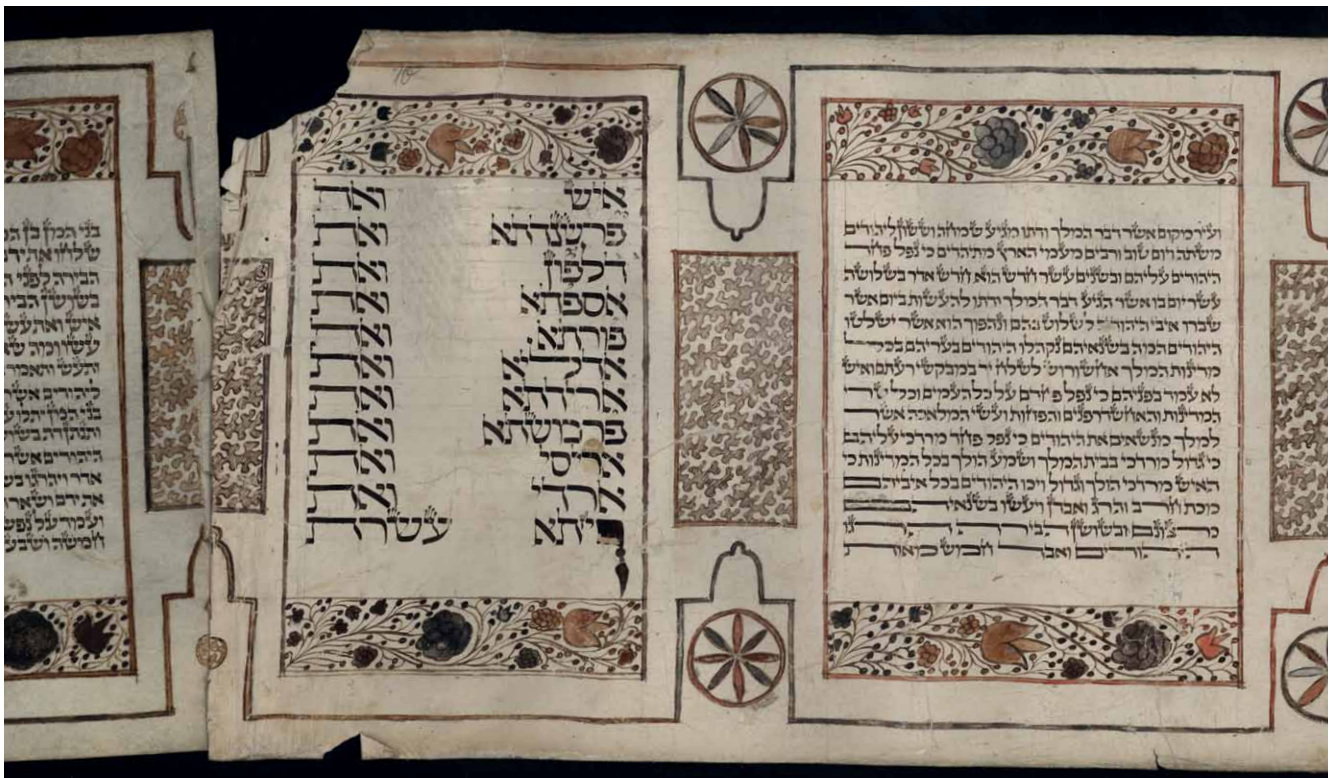 ועיר מקום אשר דבר המלך ודתו מגיע שמחה וששון ליהודים
משתה ויום טוב ורבים מעמי הארץ מתיהדים כי נפל פחד
היהודים עליהם ובשנים עשר חדש הוא חדש אדר בשלושה
עשר יום בו אשר הגיע דבר המלך ודתו להעשות ביום אשר
שברו איבי היהודים לשלוט בהם ונהפוך הוא אשר ישלטו
היהודים המה בשנאיהם נקהלו היהודים בעריהם בכל
מדינות המלך אחשורוש לשלח יד במבקשי רעתם ואיש
לא עמד בפניהם כי נפל פחדם על כל העמים וכל שרי
המדינות והאחשדרפנים והפחות ועשי המלאכה אשר
למלך מנשאים את היהודים כי נפל פחד מרדכי עליהם
כי גדול מרדכי בבית המלך ושמעו הולך בכל המדינות כי
האיש מרדכי הולך וגדול ויכו היהודים בכל איביהם
מכת חרב והרג ואבדן ויעשו בשנאיהם
כרצונם ובשושן הבירה הרגו
היהודים ואבד חמש מאות
איש ואת
פרשנדתא ואת
דלפון ואת
אספתא ואת
פורתא ואת
אדליא ואת
ארידתא ואת
פרמשתא ואת
אריסי ואת
ארדי ואת
ויזתא עשרת
בני המן בן
שלחו את
הבירה לפני
בשושן
איש ואת
עשו ומה
ותעש ותאמר
ליהודים אשר
בני המן יתלו
ותנתן דת
היהודים אשר
אדר ויהרגו
את ידם ושאר
ועמד על
חמשה